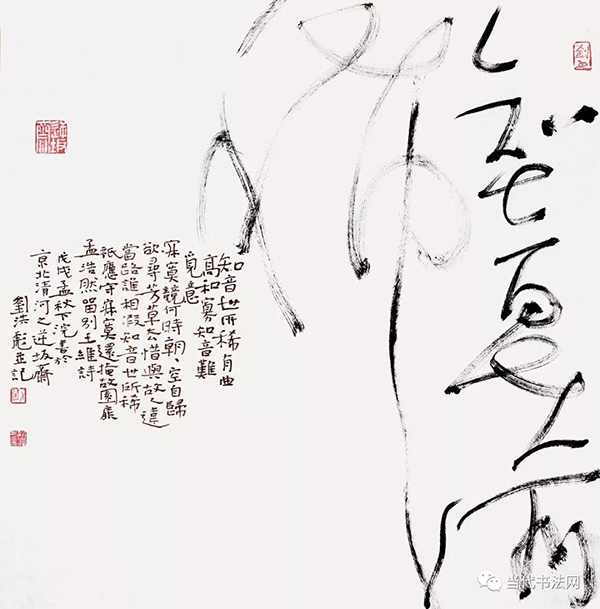 知音世所
稀
知音世所稀有曲
高和寡知音難
覓意
寂寞競何時朝、空自歸
欲尋芳草去惜與故人違
當路誰相假知音世所稀
祇應守寂寞還掩故園扉
孟浩然留別王維詩
戊戌孟秋下浣書於
京北清河之逆坂齋
劉洪彪並記
当代书法网